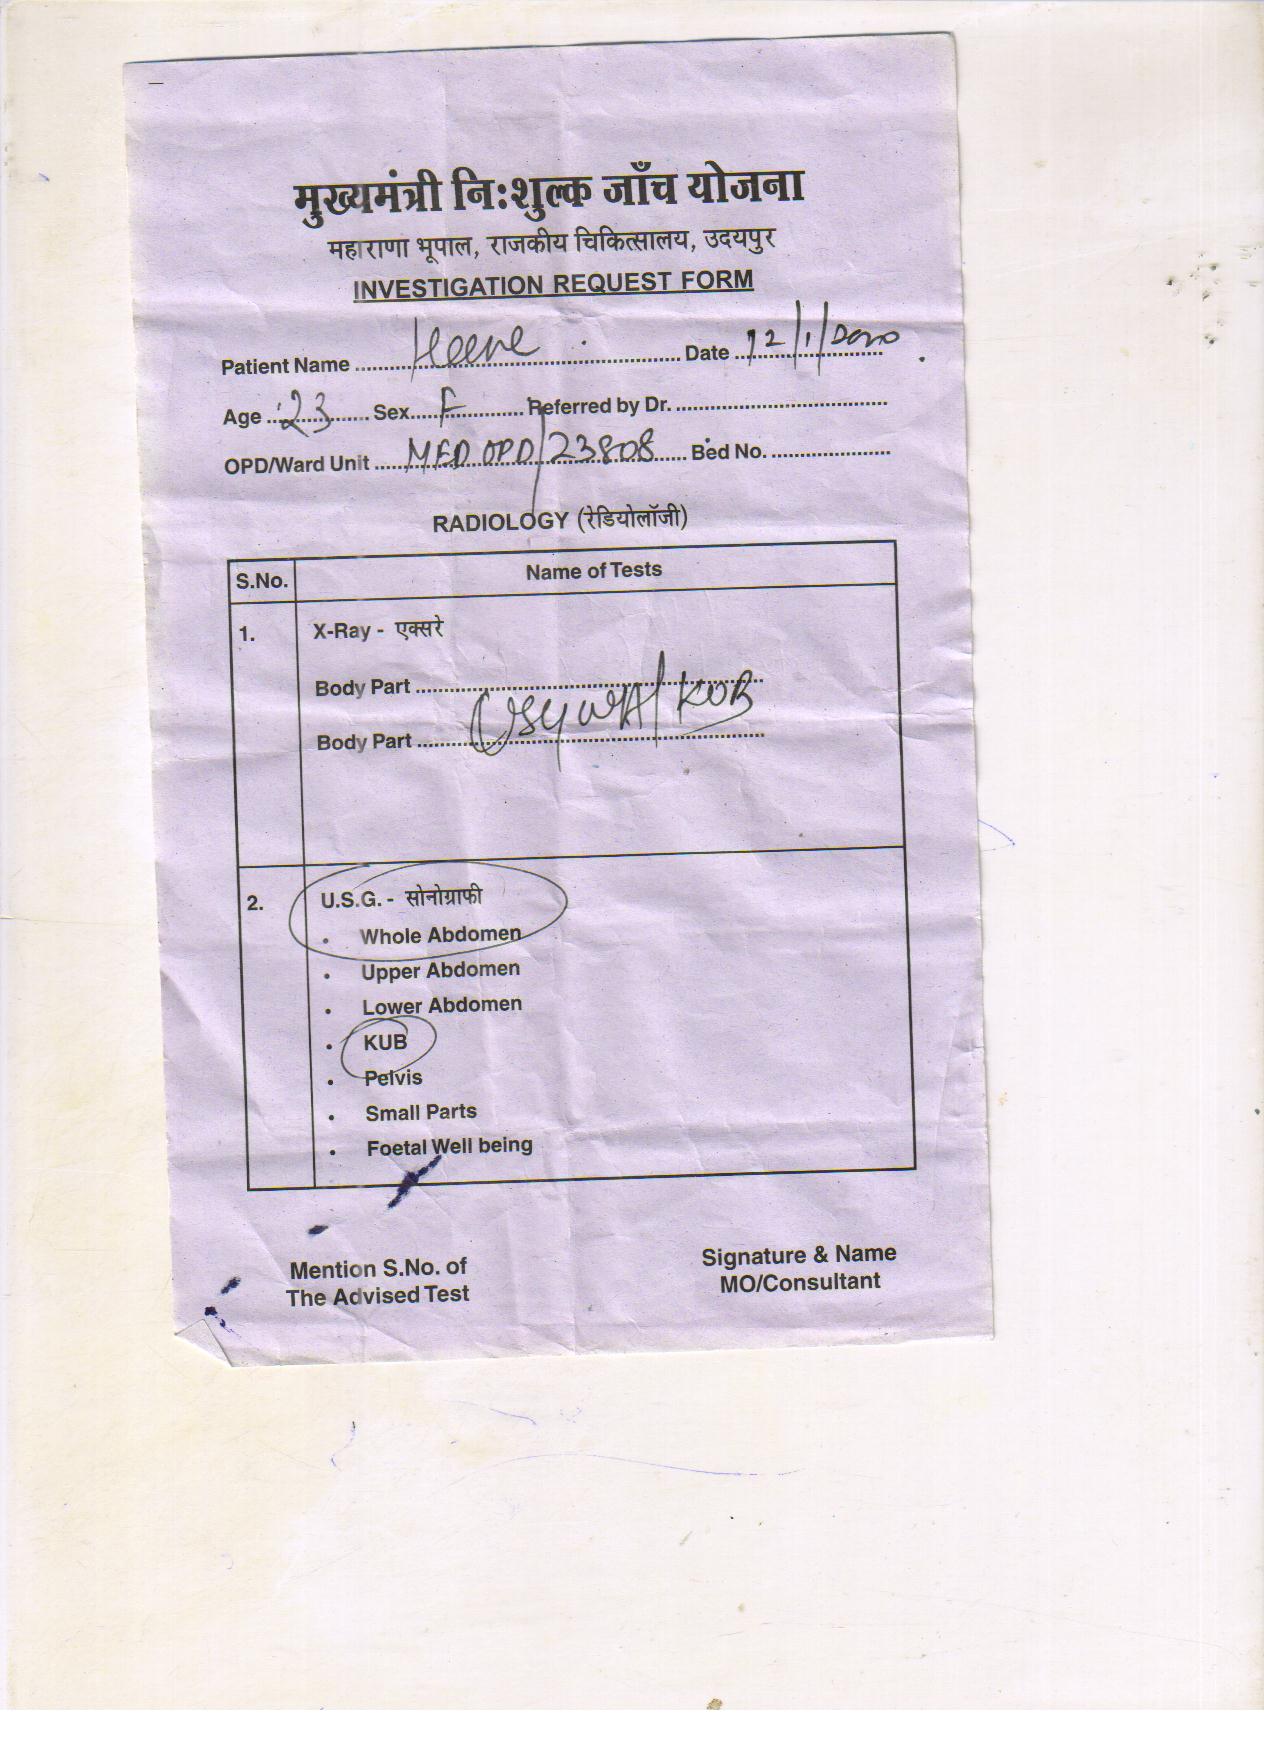 मुख्यमंत्री नि:शुल्क जाँच योजना
महाराणा भूपाल, राजकीय चिकित्सालय, उदयपुर
INVESTIGATION REQUEST FORM
Patient Name .......... Date .......... 12/1/2020
Age .......... 23 Sex .......... F Referred by Dr. ..........
OPD/Ward Unit .......... MED OPD/23808 Bed No. ..........
RADIOLOGY (रेडियोलॉजी)
S.No. Name of Tests
1. X-Ray - एक्सरे
Body Part ..........
Body Part .......... USG WA/KUB
2. U.S.G. - सोनोग्राफी
• Whole Abdomen
• Upper Abdomen
• Lower Abdomen
• KUB
• Pelvis
• Small Parts
• Foetal Well being
Mention S.No. of
The Advised Test
Signature & Name
MO/Consultant